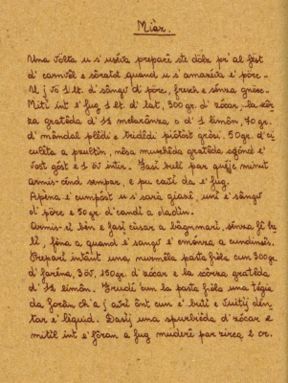 Miàz.
Una volta u s' uséva preparê ste dolz pr' al fëst
d' carnvêl e sôratôt quand u s' amazéva e' pôrc.
U j vô 1 lt. d' sângv d' pôrc, fresch e sênza grass.
Mitì int e' fug 1 lt. d' lat, 300 gr. d' zócar, la scôrza
gratêda d' ½ melarânza, o d' 1 limôn, 70 gr.
d' mândal plêdi e tridêdi piôtôst grôsi, 50 gr. d' ci
culêta a pzultin, nôsa muschêda gratêda sgönd e'
vöst göst e 1 öv intir. Fasì bull par quejc minut
armis-cènd sempar, e pu cavì da e' fug.
Apèna e' cumpöst u s' sarà giasê, unì e' sângv
d' pôrc e 50 gr. d' candì a dadin.
Armis-cì ben e fasì cùsar a bagnmarì, sènza fê bu
lì, fèna a quand e' sangv e' cmènza a cundinsês.
Preparì intânt una murnëla pasta fiêla cun 300gr.
d' farèna, 3 öv, 150gr. d' zócar e la scôrza gratêda
d' ½ limôn. Frudì cun la pasta fiêla una tégia
da fóran ch' a j avì ônt cun e' butì e svuitij dèn
tar e' liquid. Dasij una spurbièda d' zócar e
mitìl int e' fôran a fug muderê par zirca 2 or.